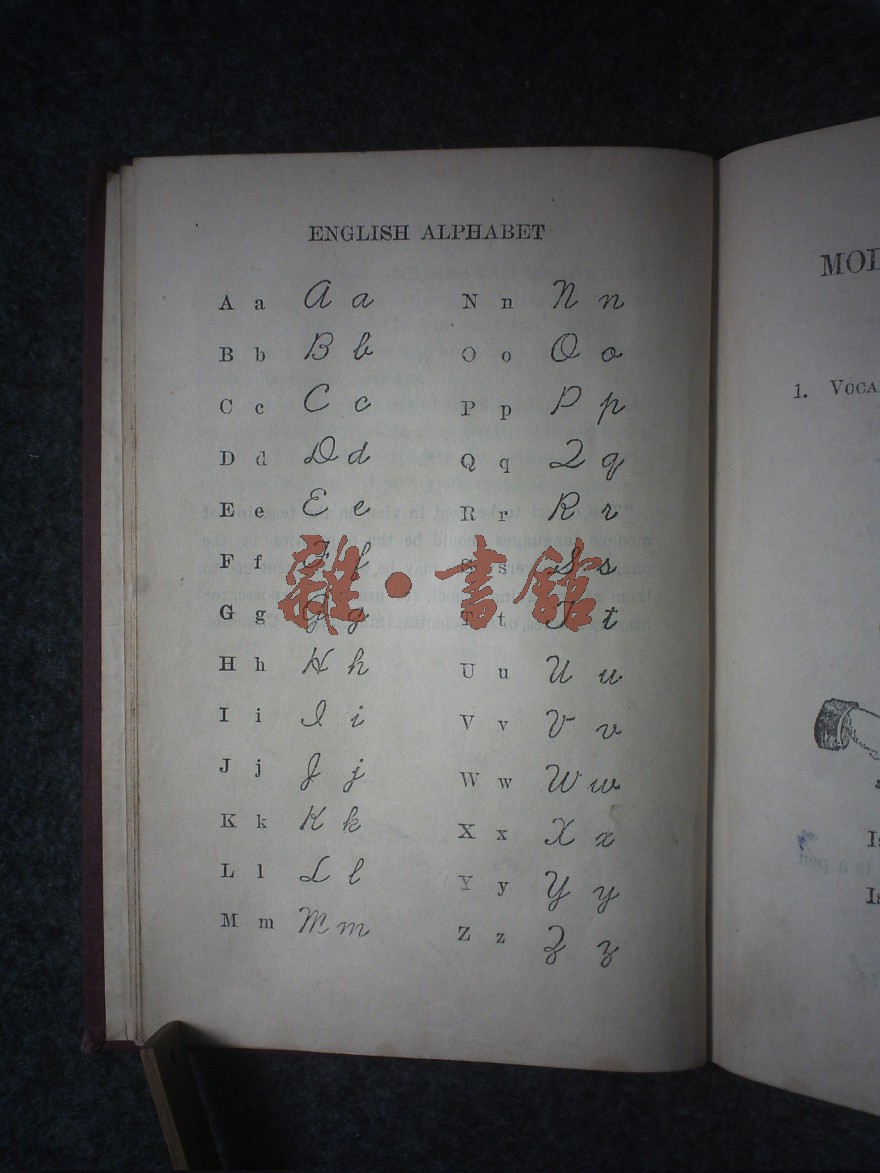 ENGLISH ALPHABET
A a A a
B b B b
C c C c
D d D d
E e E e
F f F f
G g G g
H h H h
I i I i
J j J j
K k K k
L l L l
M m M m
N n N n
O o O o
P p P p
Q q Q q
R r R r
S s S s
T t T t
U u U u
V v V v
W w W w
X x X x
Y y Y y
Z z Z z
雜·書館
1.